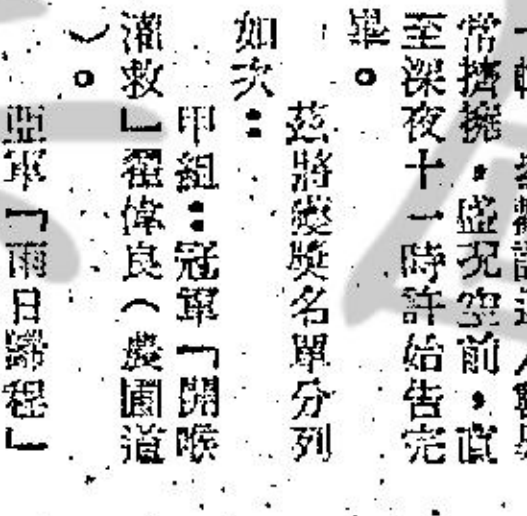 常擠擁，盛況空前，直
至深夜十一時許始告完
畢。
茲將獲奬名單分列
如次：
甲組：冠軍「開喉
灌救」翟偉良（農圃道
）。
亞軍「雨日歸程」